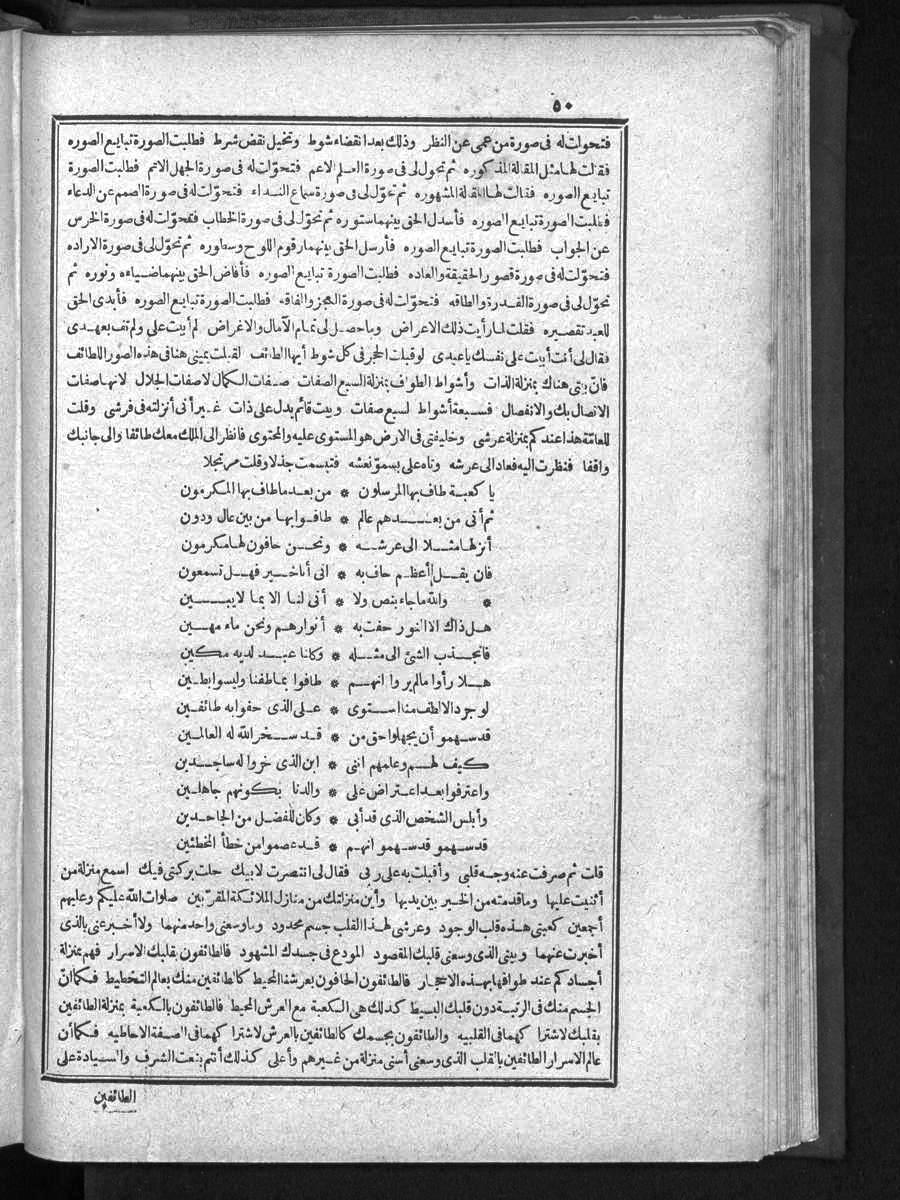 ٥٠
فتحولت له فى صورة من عمى عن النظر وذلك بعد انقضاء شوط وتخيل نقض شرط فطلبت الصورة تبايع الصوره
فقلت لها مثل المقالة المذكوره ثم تحول لى فى صورة العلم الاعم فتحولت له فى صورة الجهل الاتم فطلبت الصورة
تبايع الصوره فقلت لها المقالة المشهوره ثم تحول لى فى صورة سماع النداء فتحولت له فى صورة الصمم عن الدعاء
فطلبت الصورة تبايع الصوره فأسدل الحق بينهما ستوره ثم تحول لى فى صورة الخطاب فتحولت له فى صورة الخرس
عن الجواب فطلبت الصورة تبايع الصوره فأرسل الحق بينهما رقوم اللوح وسطوره ثم تحول لى فى صورة الاراده
فتحولت له فى صورة قصور الحقيقة والعاده فطلبت الصورة تبايع الصوره فأفاض الحق بينهما ضياءه ونوره ثم
تحول لى فى صورة القدرة والطاقه فتحولت له فى صورة العجز والفاقه فطلبت الصورة تبايع الصوره فأبدى الحق
للعبد تقصيره فقلت لما رأيت ذلك الاعراض وما حصل لى تمام الآمال والاغراض لم أبيت على ولم تف بعهدى
فقال لى أنت أبيت على نفسك يا عبدى لو قبلت الحجر فى كل شوط أيها الطائف لقبلت يمينى هنا فى هذه الصور اللطائف
فان بيتى هناك بمنزلة الذات وأشواط الطواف بمنزلة السبع الصفات صفات الكمال لا صفات الجلال لانها صفات
الاتصال بك والانفصال فسبعة أشواط لسبع صفات وبيت قائم يدل على ذات غير أنى أنزلته فى فرشى وقلت
للعامّة هذا عندكم بمنزلة عرشى وخليفتى فى الارض هو المستوى عليه والمحتوى فانظر الى الملك معك طائفا والى جانبك
واقفا فنظرت اليه فعاد الى عرشه وتاه على بسمو نعشه فتبسمت جذلا وقلت مرتجلا
يا كعبة طاف بها المرسلون * من بعد ما طاف بها المكرمون
ثم أتى من بعدهم عالم * طافوا بها من بين عال ودون
أنزلها مثلا الى عرشه * ونحن حافون لها مكرمون
فان يقل أعظم حاف به * انى أنا خير فهل تسمعون
* والله ما جاء بنص ولا * أتى لنا الا بما لا يبين
هل ذاك الا النور حفت به * أنوارهم ونحن ماء مهين
فانجذب الشئ الى مثله * وكلنا عبد لديه مكين
هلا رأوا ما لم يروا انهم * طافوا بما طفنا وليسوا بطين
لو جرد الالطف منا استوى * على الذى حفوا به طائفين
قدسهمو أن يجهلوا حق من * قد سخر الله له العالمين
كيف لهم وعلمهم اننى * ابن الذى خروا له ساجدين
واعترفوا بعد اعتراض على * والدنا بكونهم جاهلين
وأبلس الشخص الذى قد أبى * وكان للفضل من الجاحدين
قدسهمو قدسهمو انهم * قد عصموا من خطأ المخطئين
قلت ثم صرفت عنه وجه قلبى وأقبلت به على ربى فقال لى انتصرت لابيك حلت بركتى فيك اسمع منزلة من
أثنيت عليها وما قدمته من الخير بين يديها وأين منزلتك من منازل الملائكة المقربين صلوات الله عليكم وعليهم
أجمعين كعبتى هذه قلب الوجود وعرشى لهذا القلب جسم محدود وما وسعنى واحد منهما ولا أخبر عنى بالذى
أخبرت عنهما وبيتى الذى وسعنى قلبك المقصود المودع فى جسدك المشهود فالطائفون بقلبك الاسرار فهم بمنزلة
أجسادكم عند طوافها بهذه الاحجار فالطائفون الحافون بعرشنا المحيط كالطائفين منك بعالم التخطيط فكما أنّ
الجسم منك فى الرتبة دون قلبك البسيط كذلك هى الكعبة مع العرش المحيط فالطائفون بالكعبة بمنزلة الطائفين
بقلبك لاشتراكهما فى القلبيه والطائفون بجسمك كالطائفين بالعرش لاشتراكهما فى الصفة الاحاطيه فكما أن
عالم الاسرار الطائفين بالقلب الذى وسعنى أسنى منزلة من غيرهم وأعلى كذلك أنتم بنعت الشرف والسيادة على
الطائفين